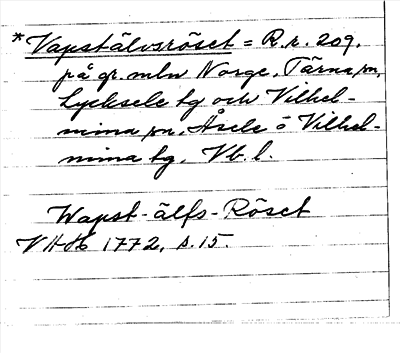 * Vapstälvsröset = R.r. 209.
på gr. mln Norge, Tärna sn,
Lycksele tg och Vilhel-
mina sn, Åsele o Vilhel-
mina tg. Vb. l.
Wapst-älfs-Röset
1772, s. 15.